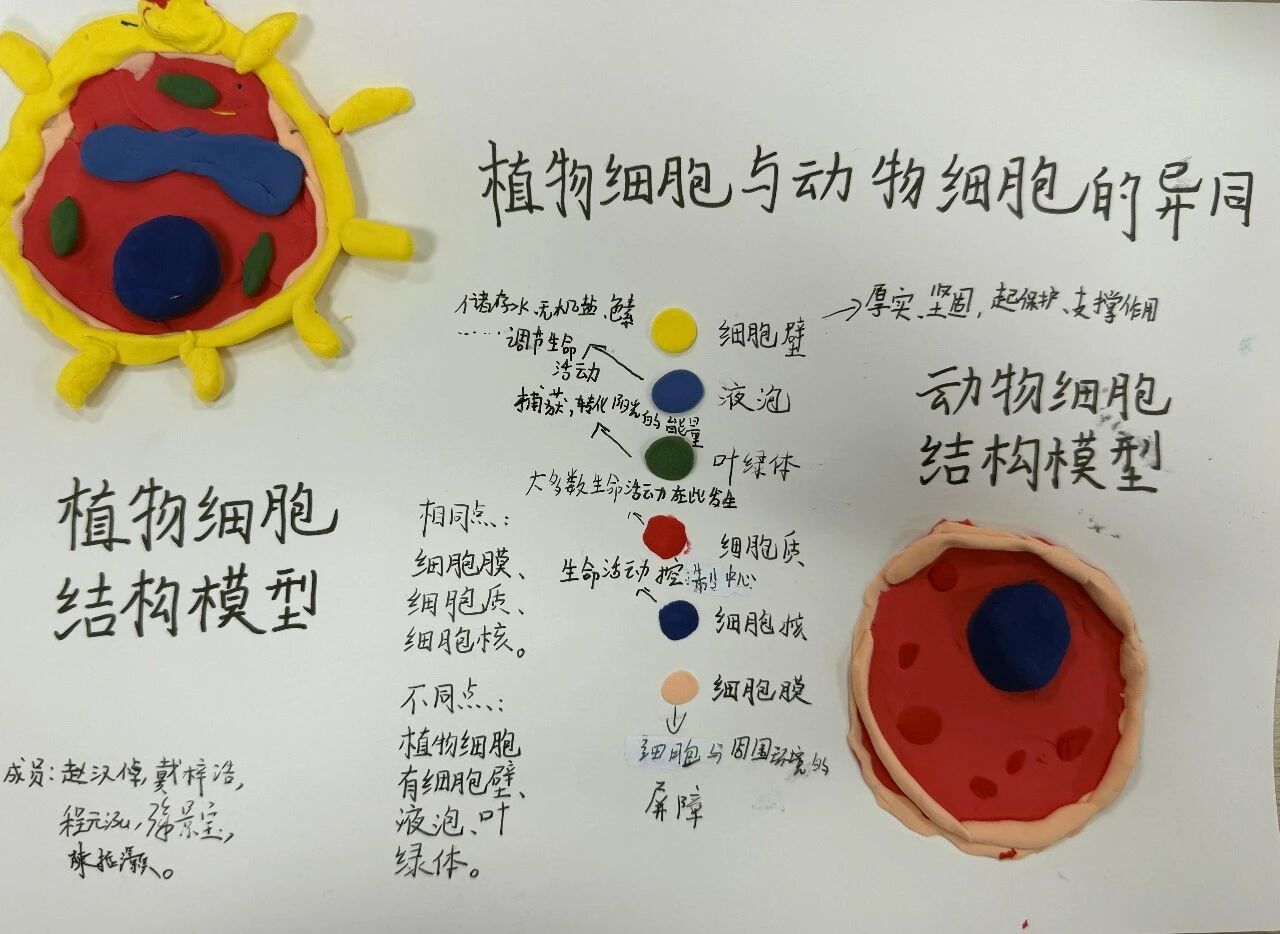 植物细胞与动物细胞的异同
植物细胞
结构模型
动物细胞
结构模型
细胞壁
→厚实、坚固,起保护、支撑作用
液泡
储存水、无机盐、色素
……调节生命
活动
叶绿体
捕获,转化阳光的能量
细胞质
大多数生命活动在此发生
细胞核
生命活动控制中心
细胞膜
细胞与周围环境的
屏障
相同点:
细胞膜、
细胞质、
细胞核。
不同点:
植物细胞
有细胞壁、
液泡、叶
绿体。
成员:赵汉倬,戴梓浩,
程元泓,景宝,